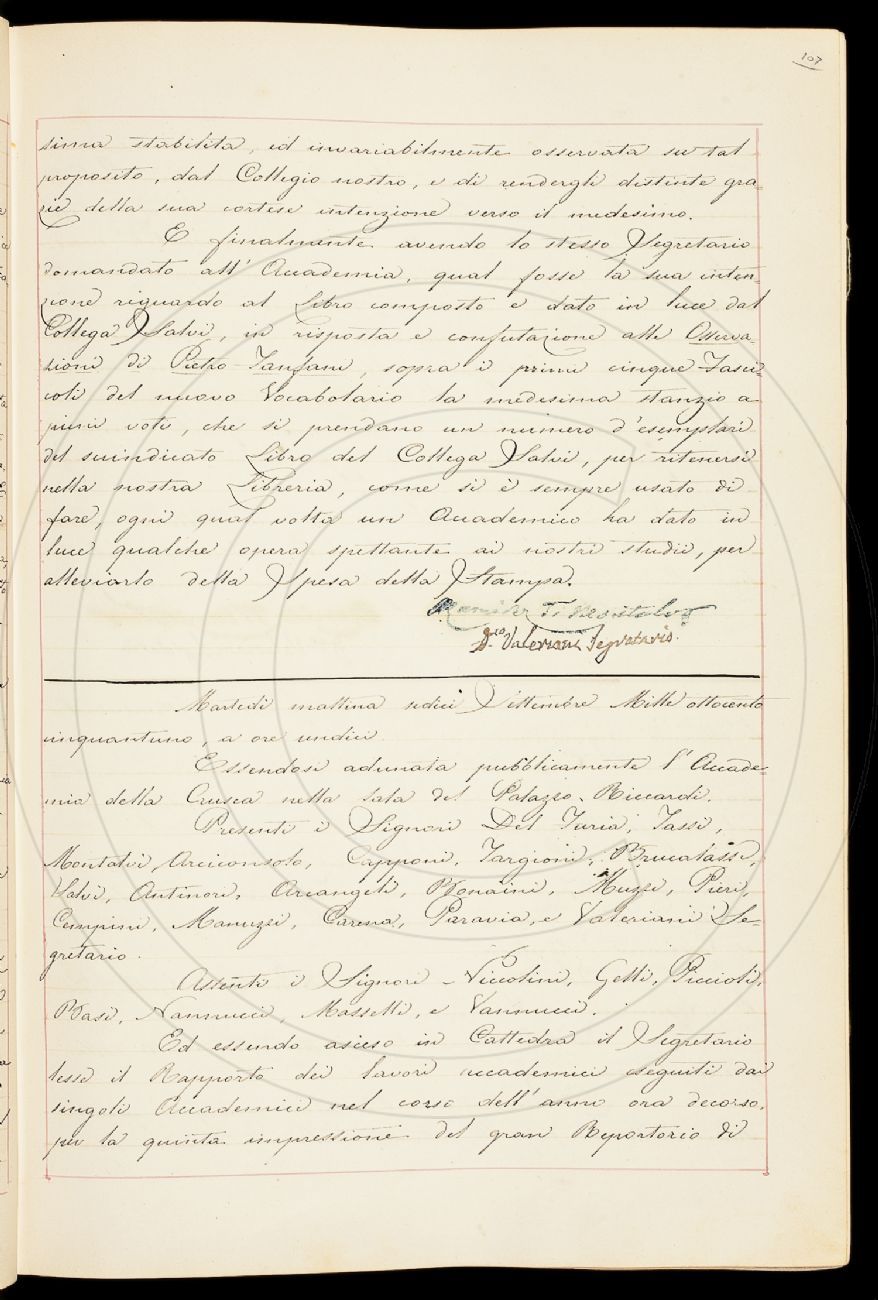 107
sima stabilita, ed invariabilmente osservata su tal
proposito, dal Collegio nostro, e di rendergli distinte gra-
zie della sua cortese intenzione verso il medesimo.
E finalmente avendo lo stesso Segretario
domandato all' Accademia, qual fosse la sua inten-
zione riguardo al Libro composto e dato in luce dal
Collega Salvi, in risposta e confutazione alle Osserva-
zioni di Pietro Fanfani, sopra i primi cinque Fasci-
coli del nuovo Vocabolario la medesima stanziò a
pieni voti, che si prendano un numero d'esemplari
del suindicato Libro del Collega Salvi, per ritenersi
nella nostra Libreria, come si è sempre usato di
fare, ogni qual volta un Accademico ha dato in
luce qualche opera spettante ai nostri studii, per
alleviarlo della Spesa della Stampa.
Ramirez Di Montalvo
D.re Valeriani Segretario.
Martedì mattina sedici Settembre Mille ottocento
cinquantuno, a ore undici
Essendosi adunata pubblicamente l'Accade-
mia della Crusca nella sala del Palazzo Riccardi.
Presenti i Signori Del Furia, Tassi,
Montalvi, Arciconsolo, Capponi, Targioni, Brucalassi,
Salvi, Antinori, Arcangeli, Bonaini, Muzzi, Pieri,
Cempini, Manuzzi, Carena, Paravia, e Valeriani Se-
gretario.
Assenti i Signori Niccolini, Gelli, Piccioli,
Basi, Nannucci, Masselli, e Vannucci.
Ed essendo asceso in Cattedra il Segretario
lesse il Rapporto dei lavori accademici eseguiti dai
singoli Accademici nel corso dell'anno ora decorso,
per la quinta impressione del gran Repertorio di